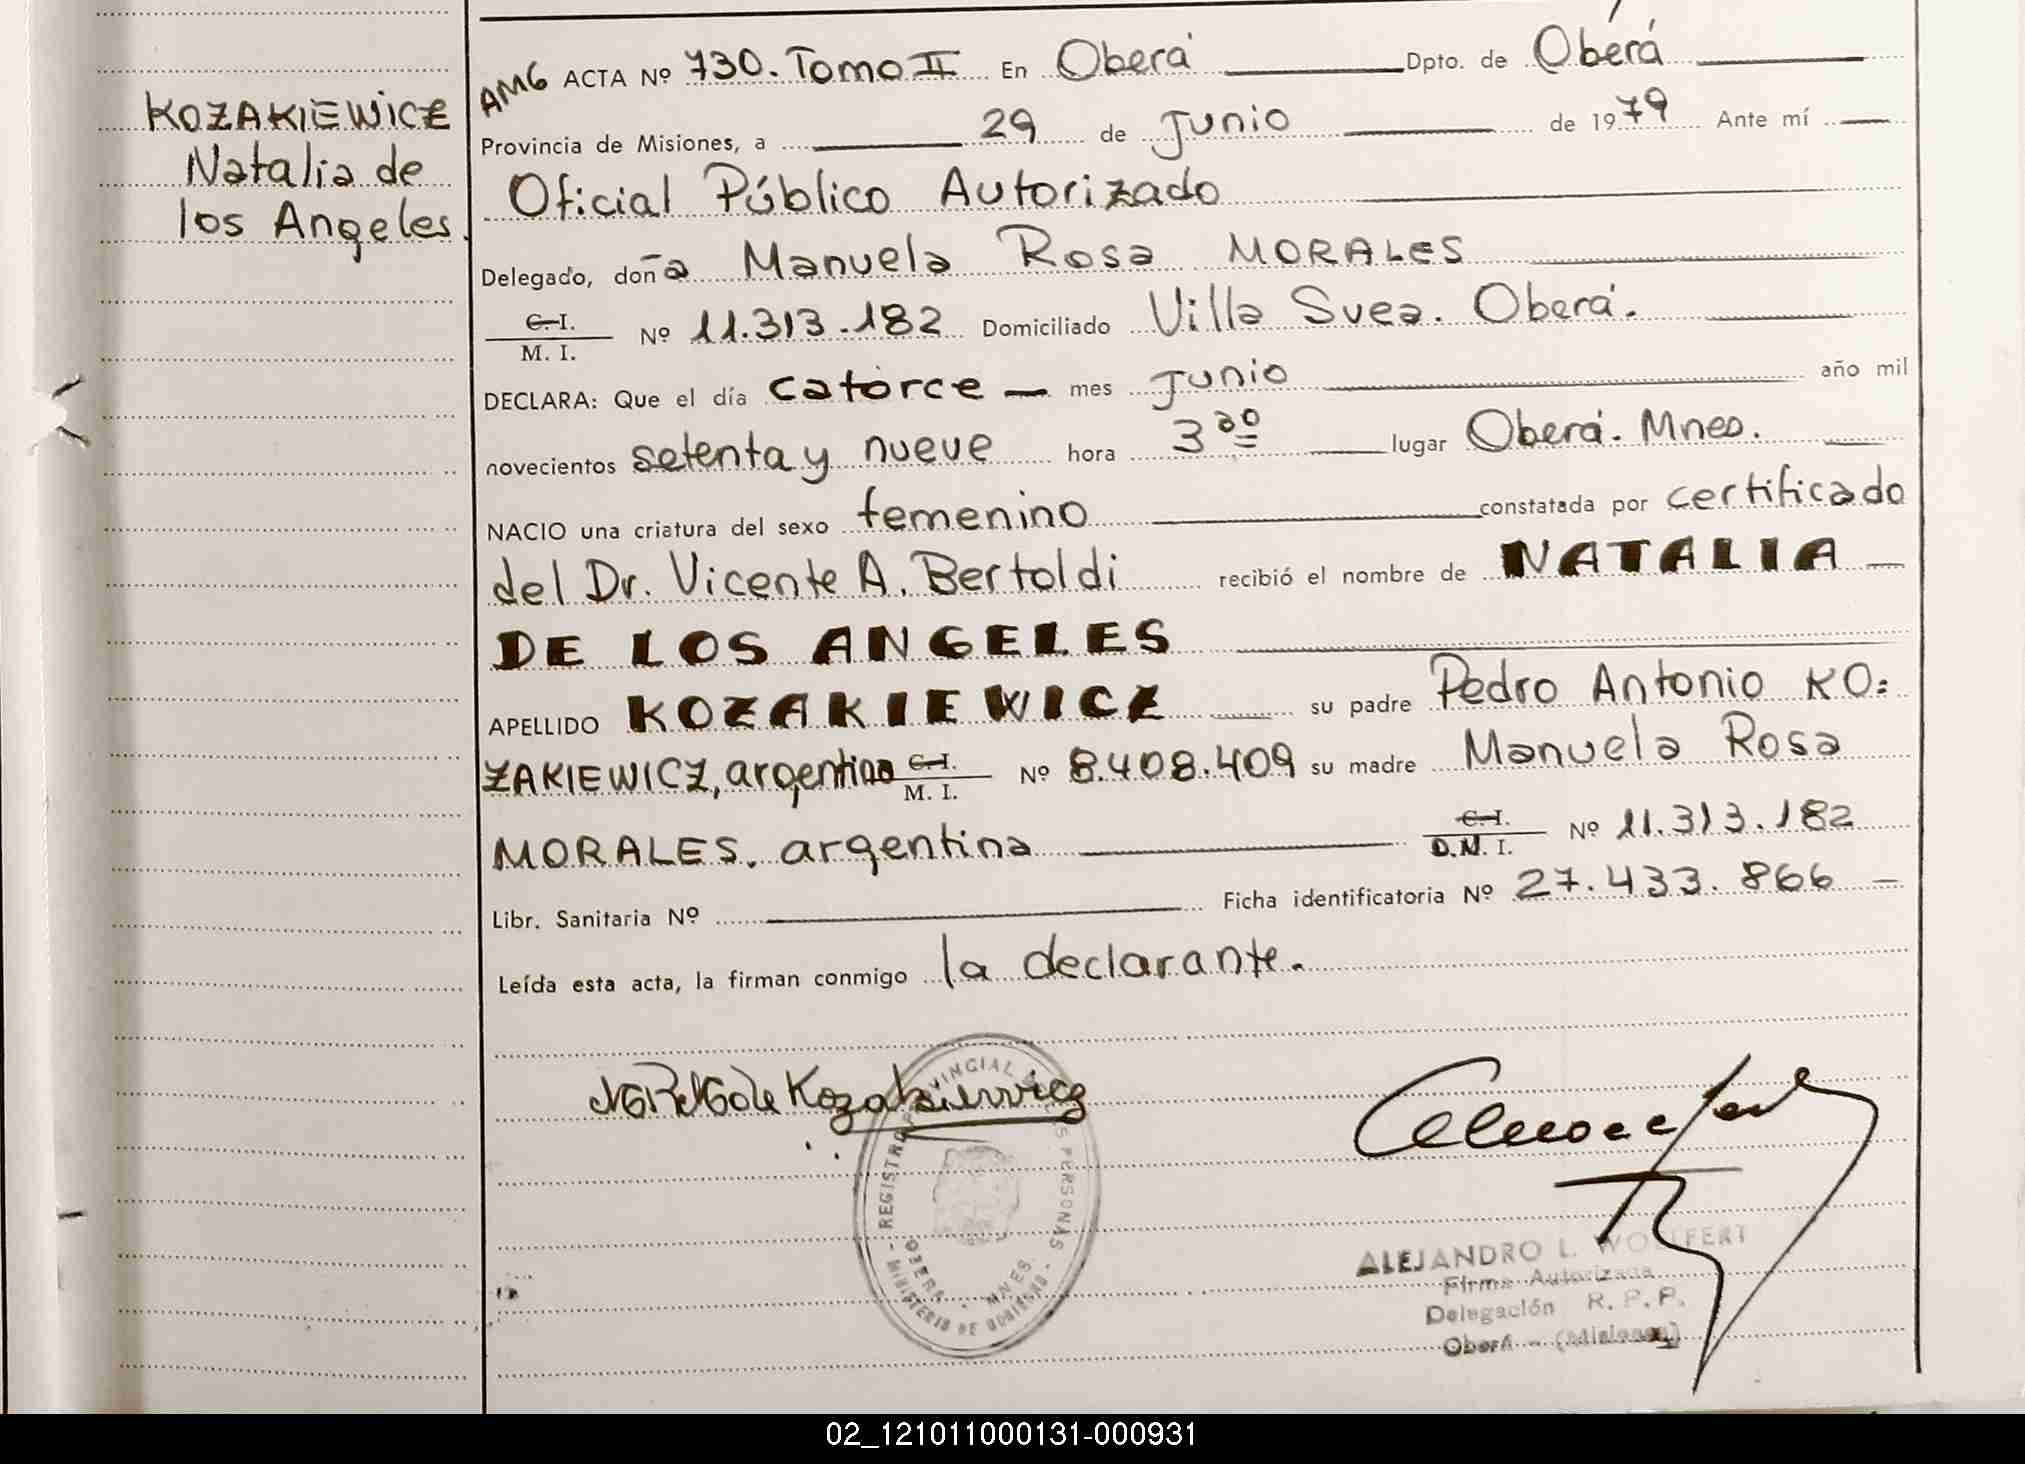 KOZAKIEWICZ
Natalia de
los Angeles.
AMG ACTA Nº 730. Tomo II En Oberá Dpto. de Oberá
Provincia de Misiones, a 29 de Junio de 1979 Ante mí
Oficial Público Autorizado
Delegado, doña Manuela Rosa MORALES
C. I.
M. I. Nº 11.313.182 Domiciliado Villa Svea. Oberá.
DECLARA: Que el día catorce mes Junio año mil
novecientos setenta y nueve hora 3 30 lugar Oberá. Mnes.
NACIO una criatura del sexo femenino constatada por certificado
del Dr. Vicente A. Bertoldi recibió el nombre de NATALIA
DE LOS ANGELES
APELLIDO KOZAKIEWICZ su padre Pedro Antonio KO=
ZAKIEWICZ, argentino C. I.
M. I. Nº 8.408.409 su madre Manuela Rosa
MORALES. argentina C. I.
D.N. I. Nº 11.313.182
Libr. Sanitaria Nº Ficha identificatoria Nº 27.433.866
Leída esta acta, la firman conmigo la declarante.
de Kozakiewicz
REGISTRO PROVINCIAL DE LAS PERSONAS
OBERA - MNES
- MINISTERIO DE GOBIERNO -
ALEJANDRO L. WOLFFERT
Firma Autorizada
Delegación R. P. P.
Oberá - (Misiones)
02_121011000131-000931